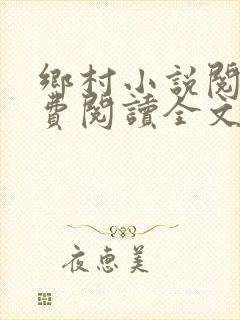 鄉村小說閱
費閱讀全文
夜惠美